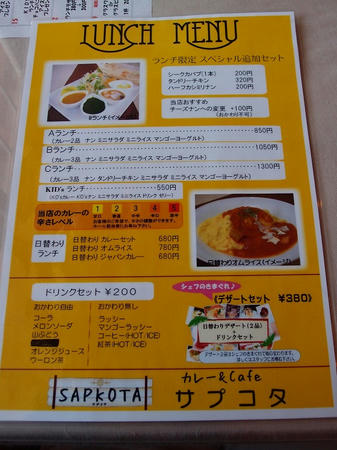 LUNCH MENU
ランチ限定 スペシャル追加セット
シークカバブ(1本) 200円
タンドリーチキン 320円
ハーフカシミリナン 200円
当店おすすめ
チーズナンへの変更 +100円
(おかわり不可)
Bランチ(イメージ)
Aランチ 850円
(カレー2品 ナン ミニサラダ ミニライス マンゴーヨーグルト)
Bランチ 1050円
(カレー3品 ナン ミニサラダ ミニライス マンゴーヨーグルト)
Cランチ 1300円
(カレー3品 ナン タンドリーチキン ミニサラダ ミニライス マンゴーヨーグルト)
KID'sランチ 550円
(KID'sカレー KID'sナン ミニサラダ ミニライス ドリンク ゼリー)
当店のカレーの
辛さレベル
1 2 3 4 5
甘口 普通 中辛 辛口 激辛
日替わり
ランチ
日替わり カレーセット 680円
日替わり オムライス 780円
日替わり ジャパンカレー 680円
日替わりオムライス(イメージ)
ドリンクセット ¥200
おかわり自由
コーラ
メロンソーダ
山ぶどう
オレンジジュース
ウーロン茶
おかわり無し
ラッシー
マンゴーラッシー
コーヒー(HOT/ICE)
紅茶(HOT/ICE)
シェフのきまぐれ♪
《デザートセット ¥380》
日替わりデザート(2品)
+
ドリンクセット
SAPKOTA
カレー&Cafe
サプコタ